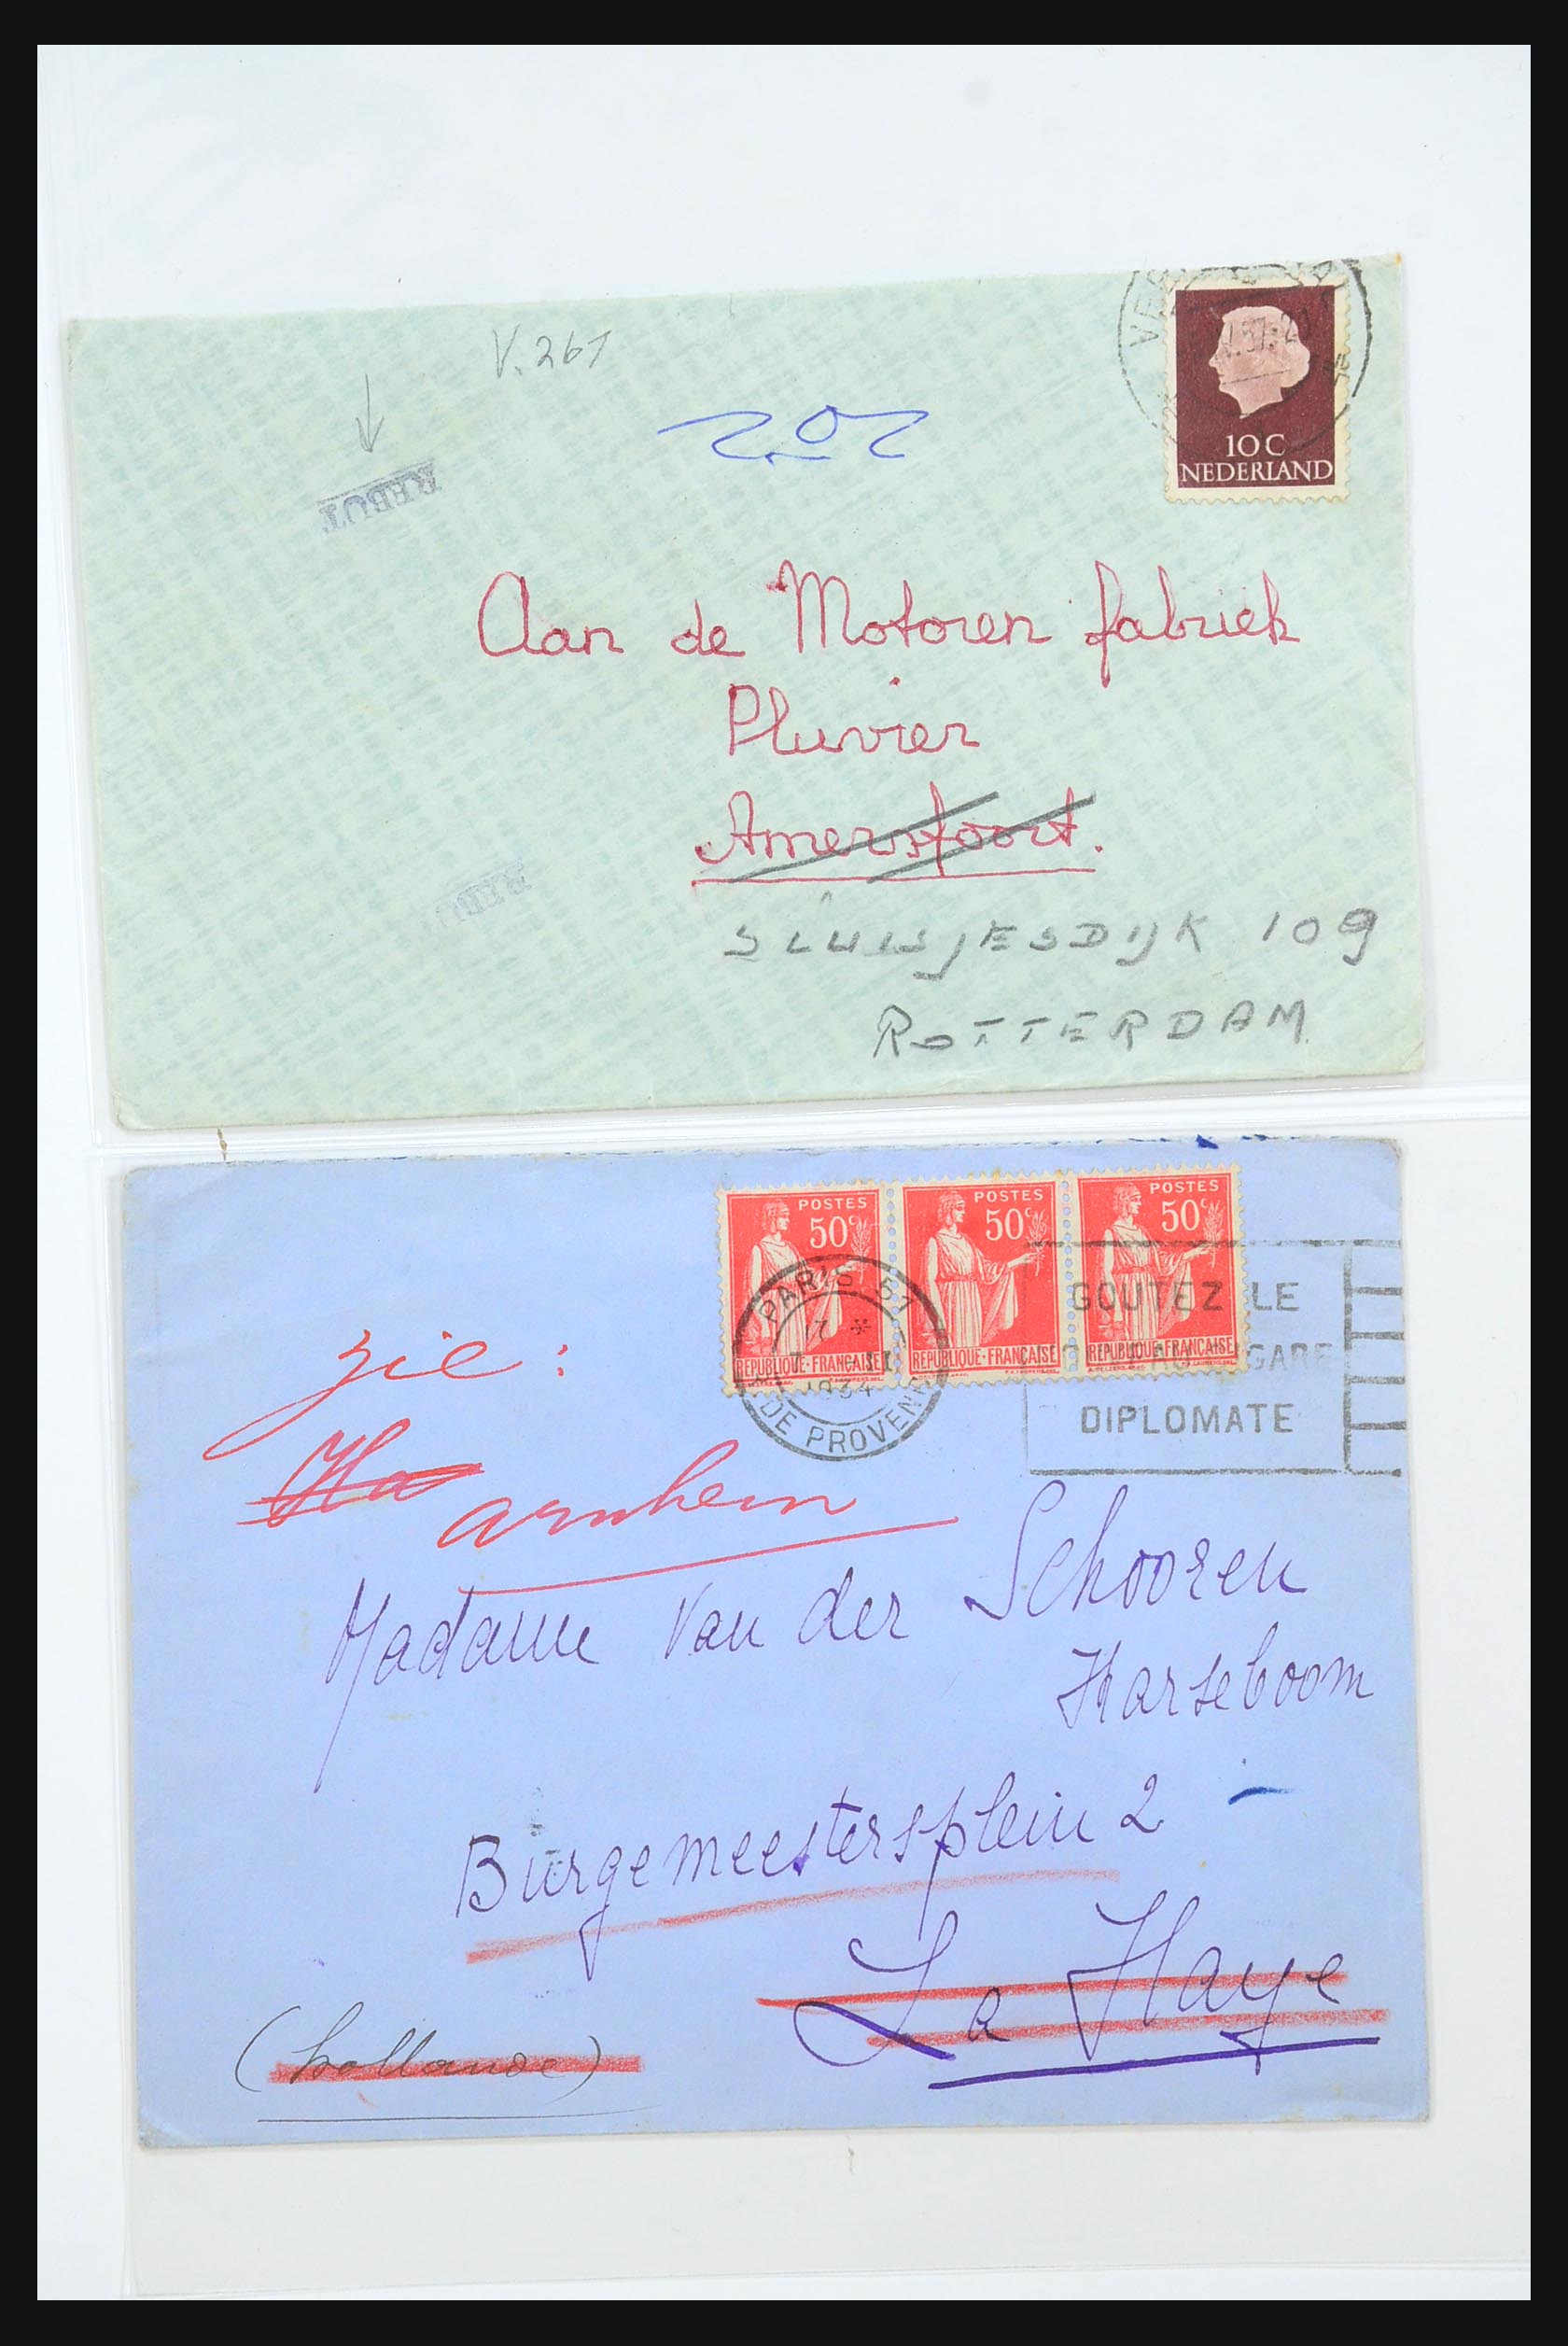 V. 261
REBUT
10 C
NEDERLAND
Aan de Motoren fabriek
Pluvier
Amersfoort.
SLUISJESDIJK 109
ROTTERDAM
POSTES
50c
REPUBLIQUE-FRANÇAISE
POSTES
50c
REPUBLIQUE-FRANÇAISE
POSTES
50c
REPUBLIQUE-FRANÇAISE
PARIS 57
17 *
1934
DE PROVENCE
GOUTEZ LE
DIPLOMATE
zie:
arnhem
Madame Van der Schooren
Harseboom
Burgemeestersplein 2
La Haye
(hollande)